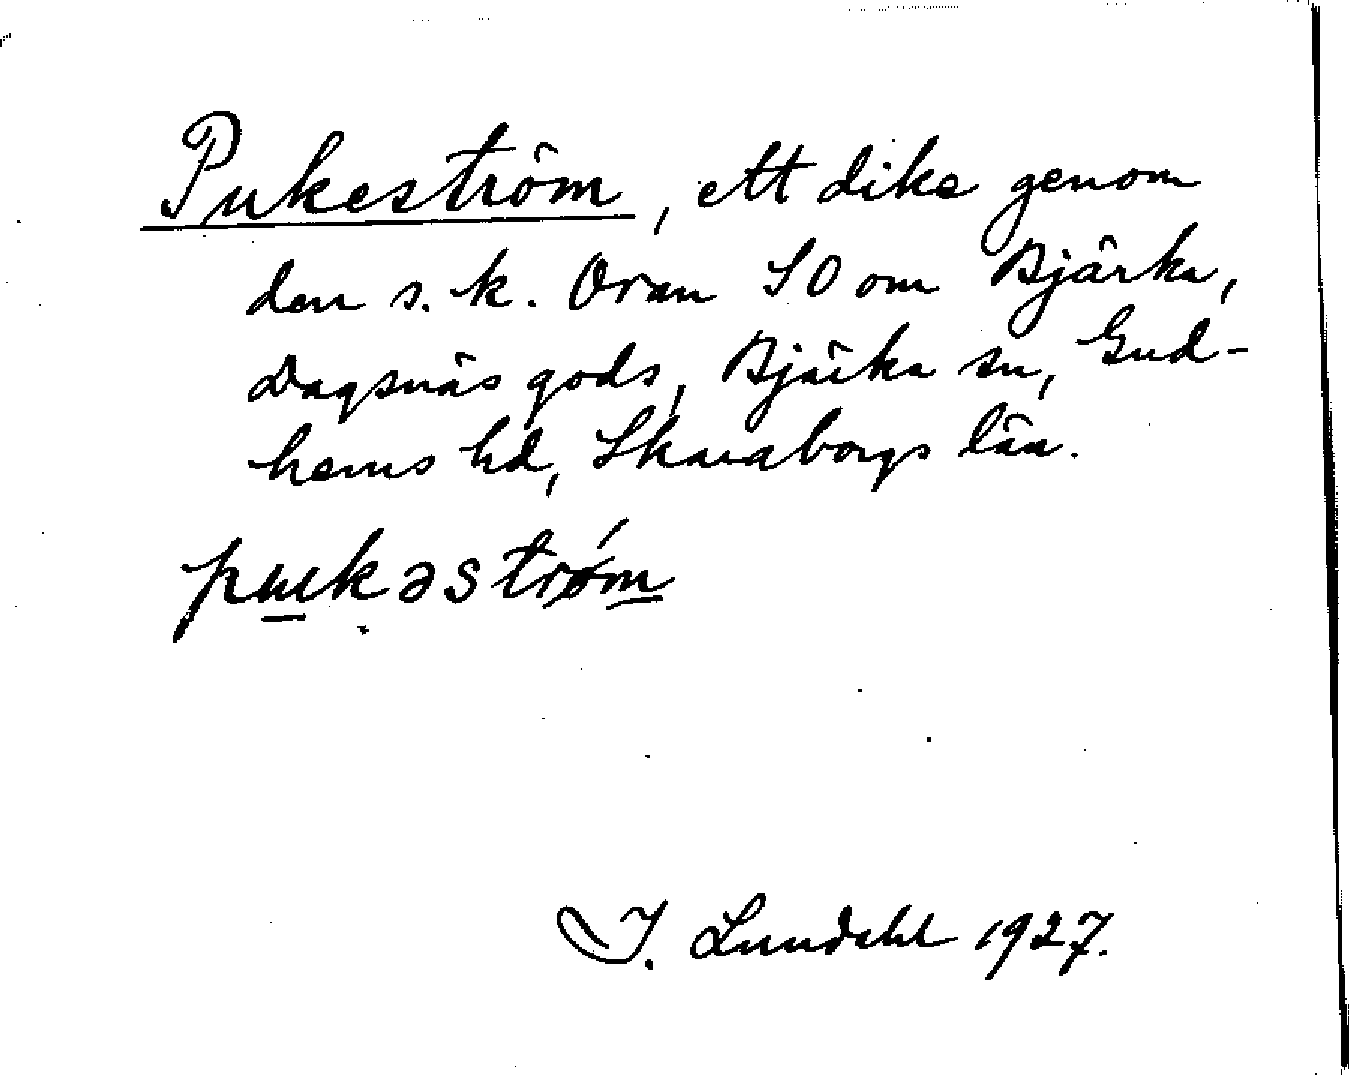 Pukeström, ett dike genom
den s. k. Oran SO om Bjärka,
Dagsnäs gods, Bjärka sn, Gud-
hems hd, Skaraborgs län.
pukəström
I. Lundahl 1927.